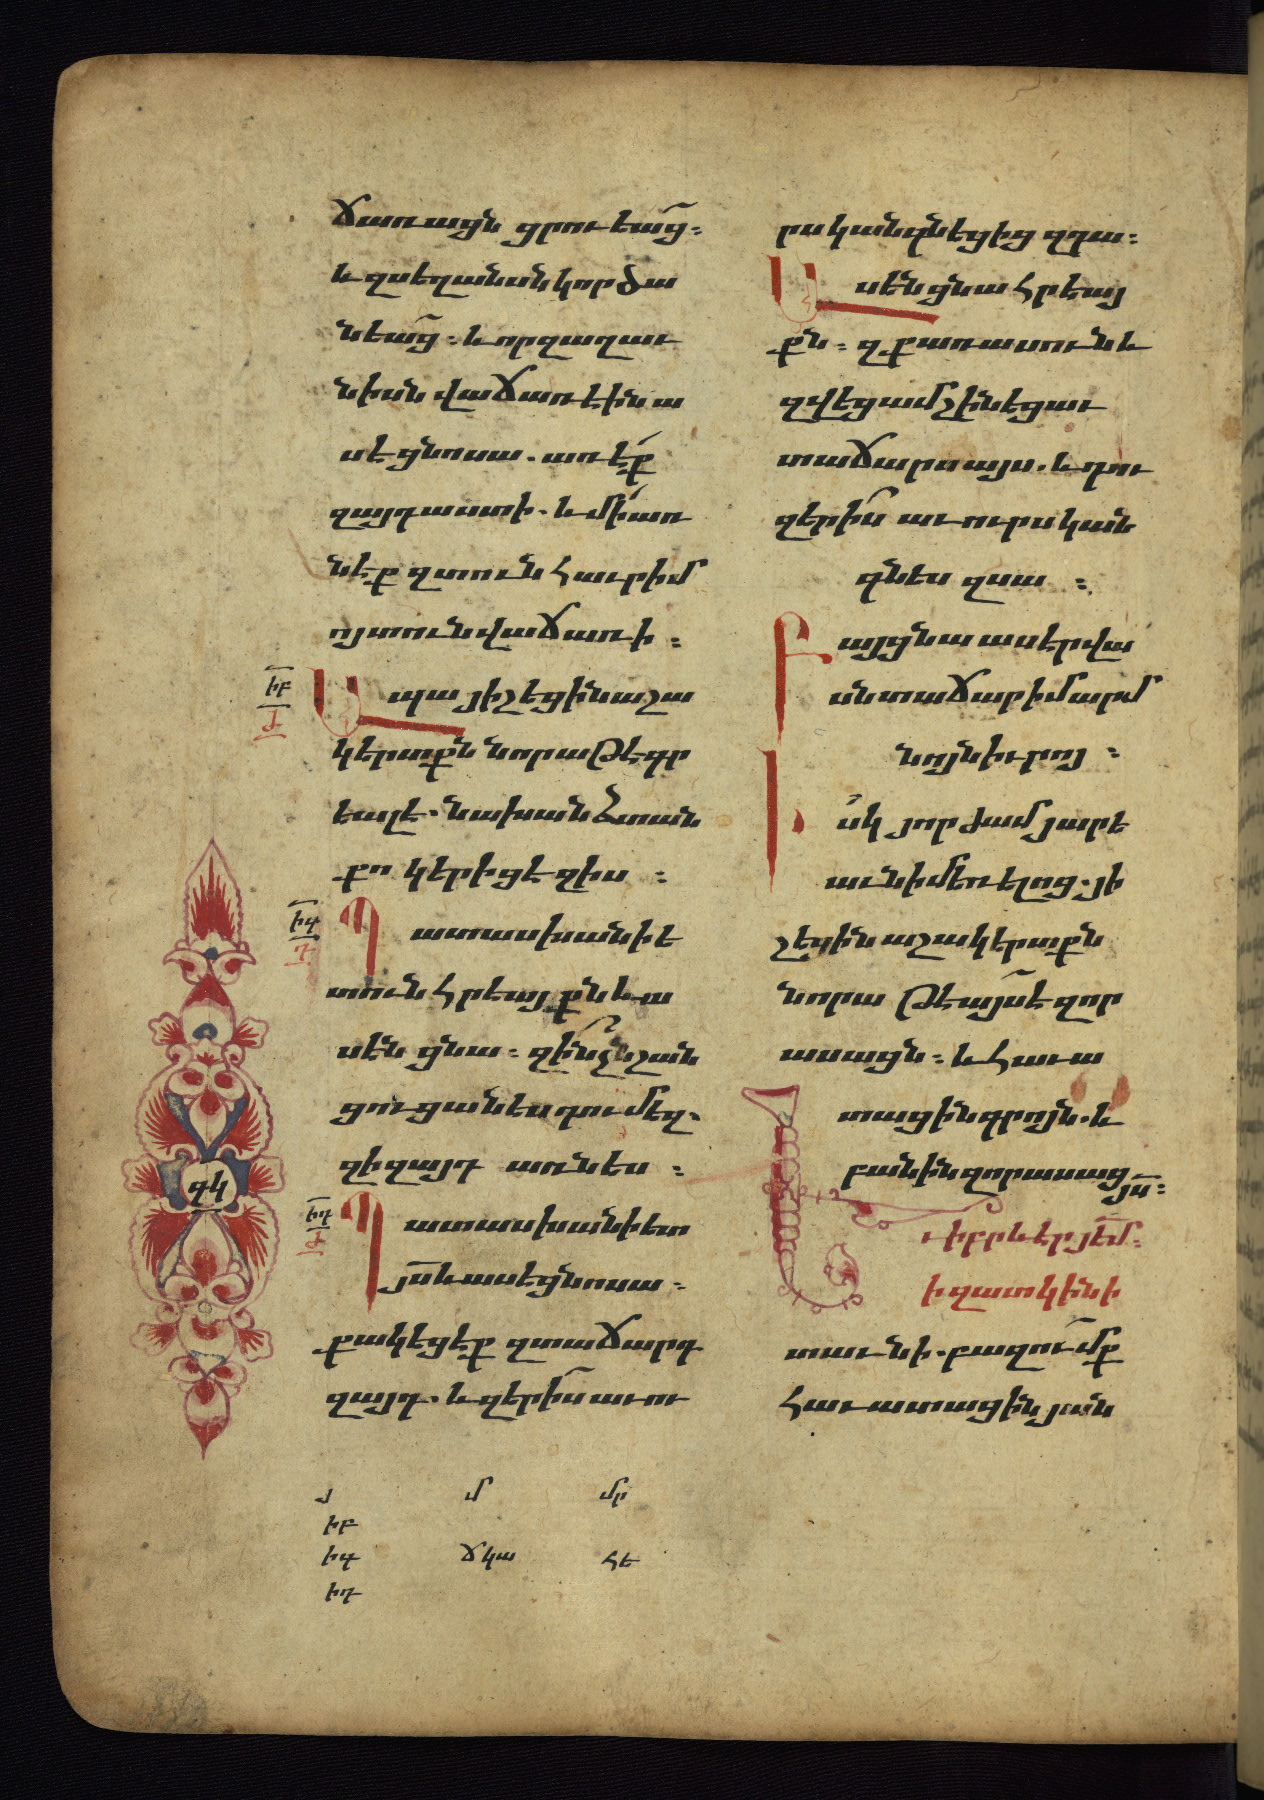 ճառացն ցրուեաց֊
և զսեղանսն կործա
նեաց։ և որ զաղաւ
նիսն վաճառէին ա
սէ ցնոսա. առէք
զայդ աստի. և մի առ
նէք զտուն հաւր իմ
ոյ տուն վաճառի։
իբ
Ապա յիշեցին աշա
կերտքն նորա թէ գր
եալ է. նախանձ տան
քո կերիցէ զիս։
իգ
Պատասխանի ե
տուն հրեայքն և ա
սեն ցնա։ զի՞նչ նշան
ցուցանես դու մեզ.
զի զայդ առնես։
իդ
Պատասխանի ետ
յս և ասէ ցնոսա։
քակեցէք զտաճարդ
զայդ. և զերիս աւու
գկ
րս կանգնեցից զդա։
Ասեն ցնա հրեայ
քն։ զքառասուն և
զվեց ամ շինեցաւ
տաճարս այս. և դու
զերիս աւուրս կան
գնես զսա։
Բայց նա ասէր վա
սն տաճարի մարմ
նոյ իւրոյ։
Իսկ յորժամ յարե
աւ ի մեռելոց. յի
շեցին աշակերտքն
նորա թէ այս է զոր
ասացն։ և հաւա
տացին գրոյն. և
բանին զոր ասաց
յս։
Եւ իբրև էր յեմ։
ի զատկի ի
տաւնի. բազումք
հաւատացին յան
մ մր
իբ
իգ ճկա հե
իդ